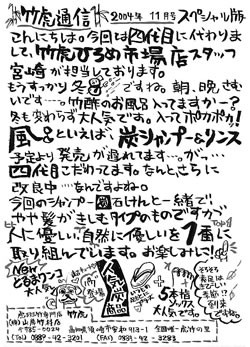 竹虎通信 2004年 11月号 スペシャル版
こんにちは。今回は四代目に代わりま
して、竹虎ひろめ市場店スタッフ
宮崎が担当しております。
もうすっかり冬ですね。朝、晩、さむ
いです…。竹酢のお風呂入ってますかー?
冬も変わらず大人気です。入ってポカポカ!
風呂といえば、炭シャンプー&リンス
予定より発売が遅れてます…。がっ…
四代目こだわってます。なんと、さらに
改良中…なんですよねっ。
今回のシャンプー 石けんと一緒で!
やや髪がきしむタイプのものですが
人に優しい、自然に優しいを1番に
取り組んでいます。お楽しみに!
New
人気炭商品
そろそろ
5本指
大人気
です。
虎斑竹専門店 竹虎
(株)山岸竹材店
〒785-0024 高知県須崎市安和913-1 全国唯一虎竹の里
(TEL) 0889-42-3201 (FAX) 0889-42-3283